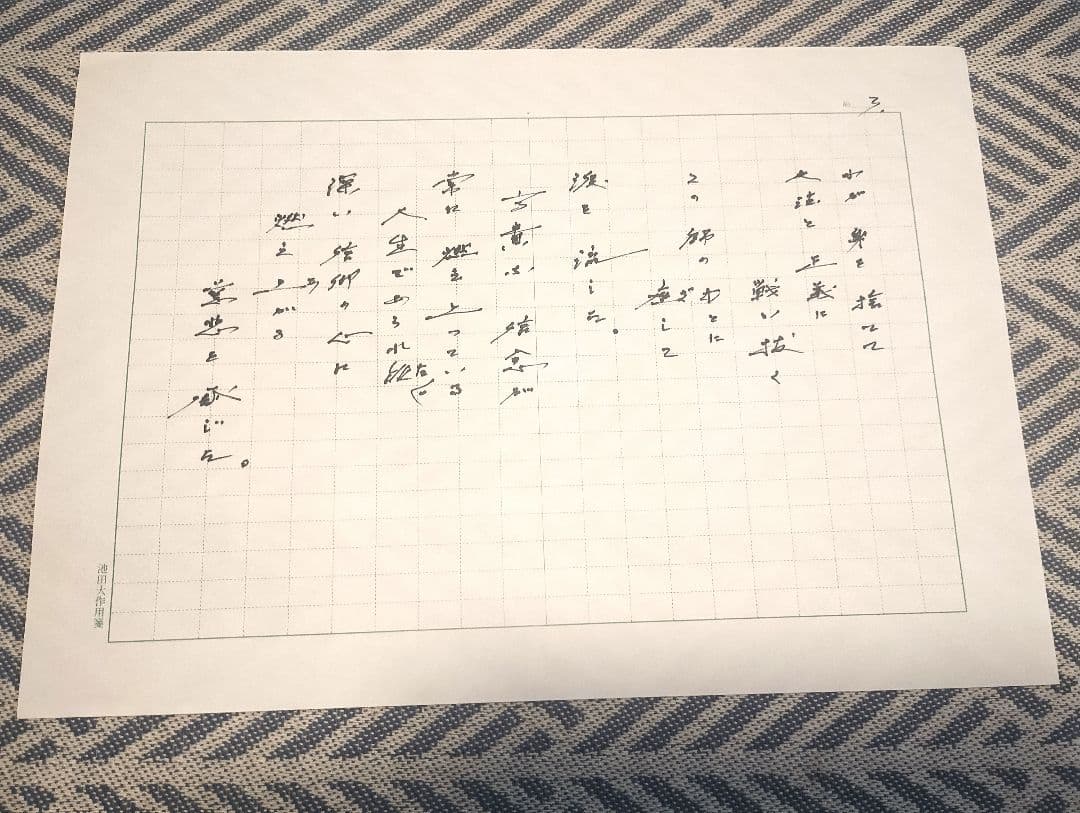 № 3.
わが 身を 捨てて
大法と 正義に
戦い 抜く
この 師の もとに
座して
ざ
涙を 流した。
高貴な 信念が
常に 燃え上っている
人生であられ
深い 信仰の心に
燃え上がる
慈悲を 感じた。
池田大作用箋